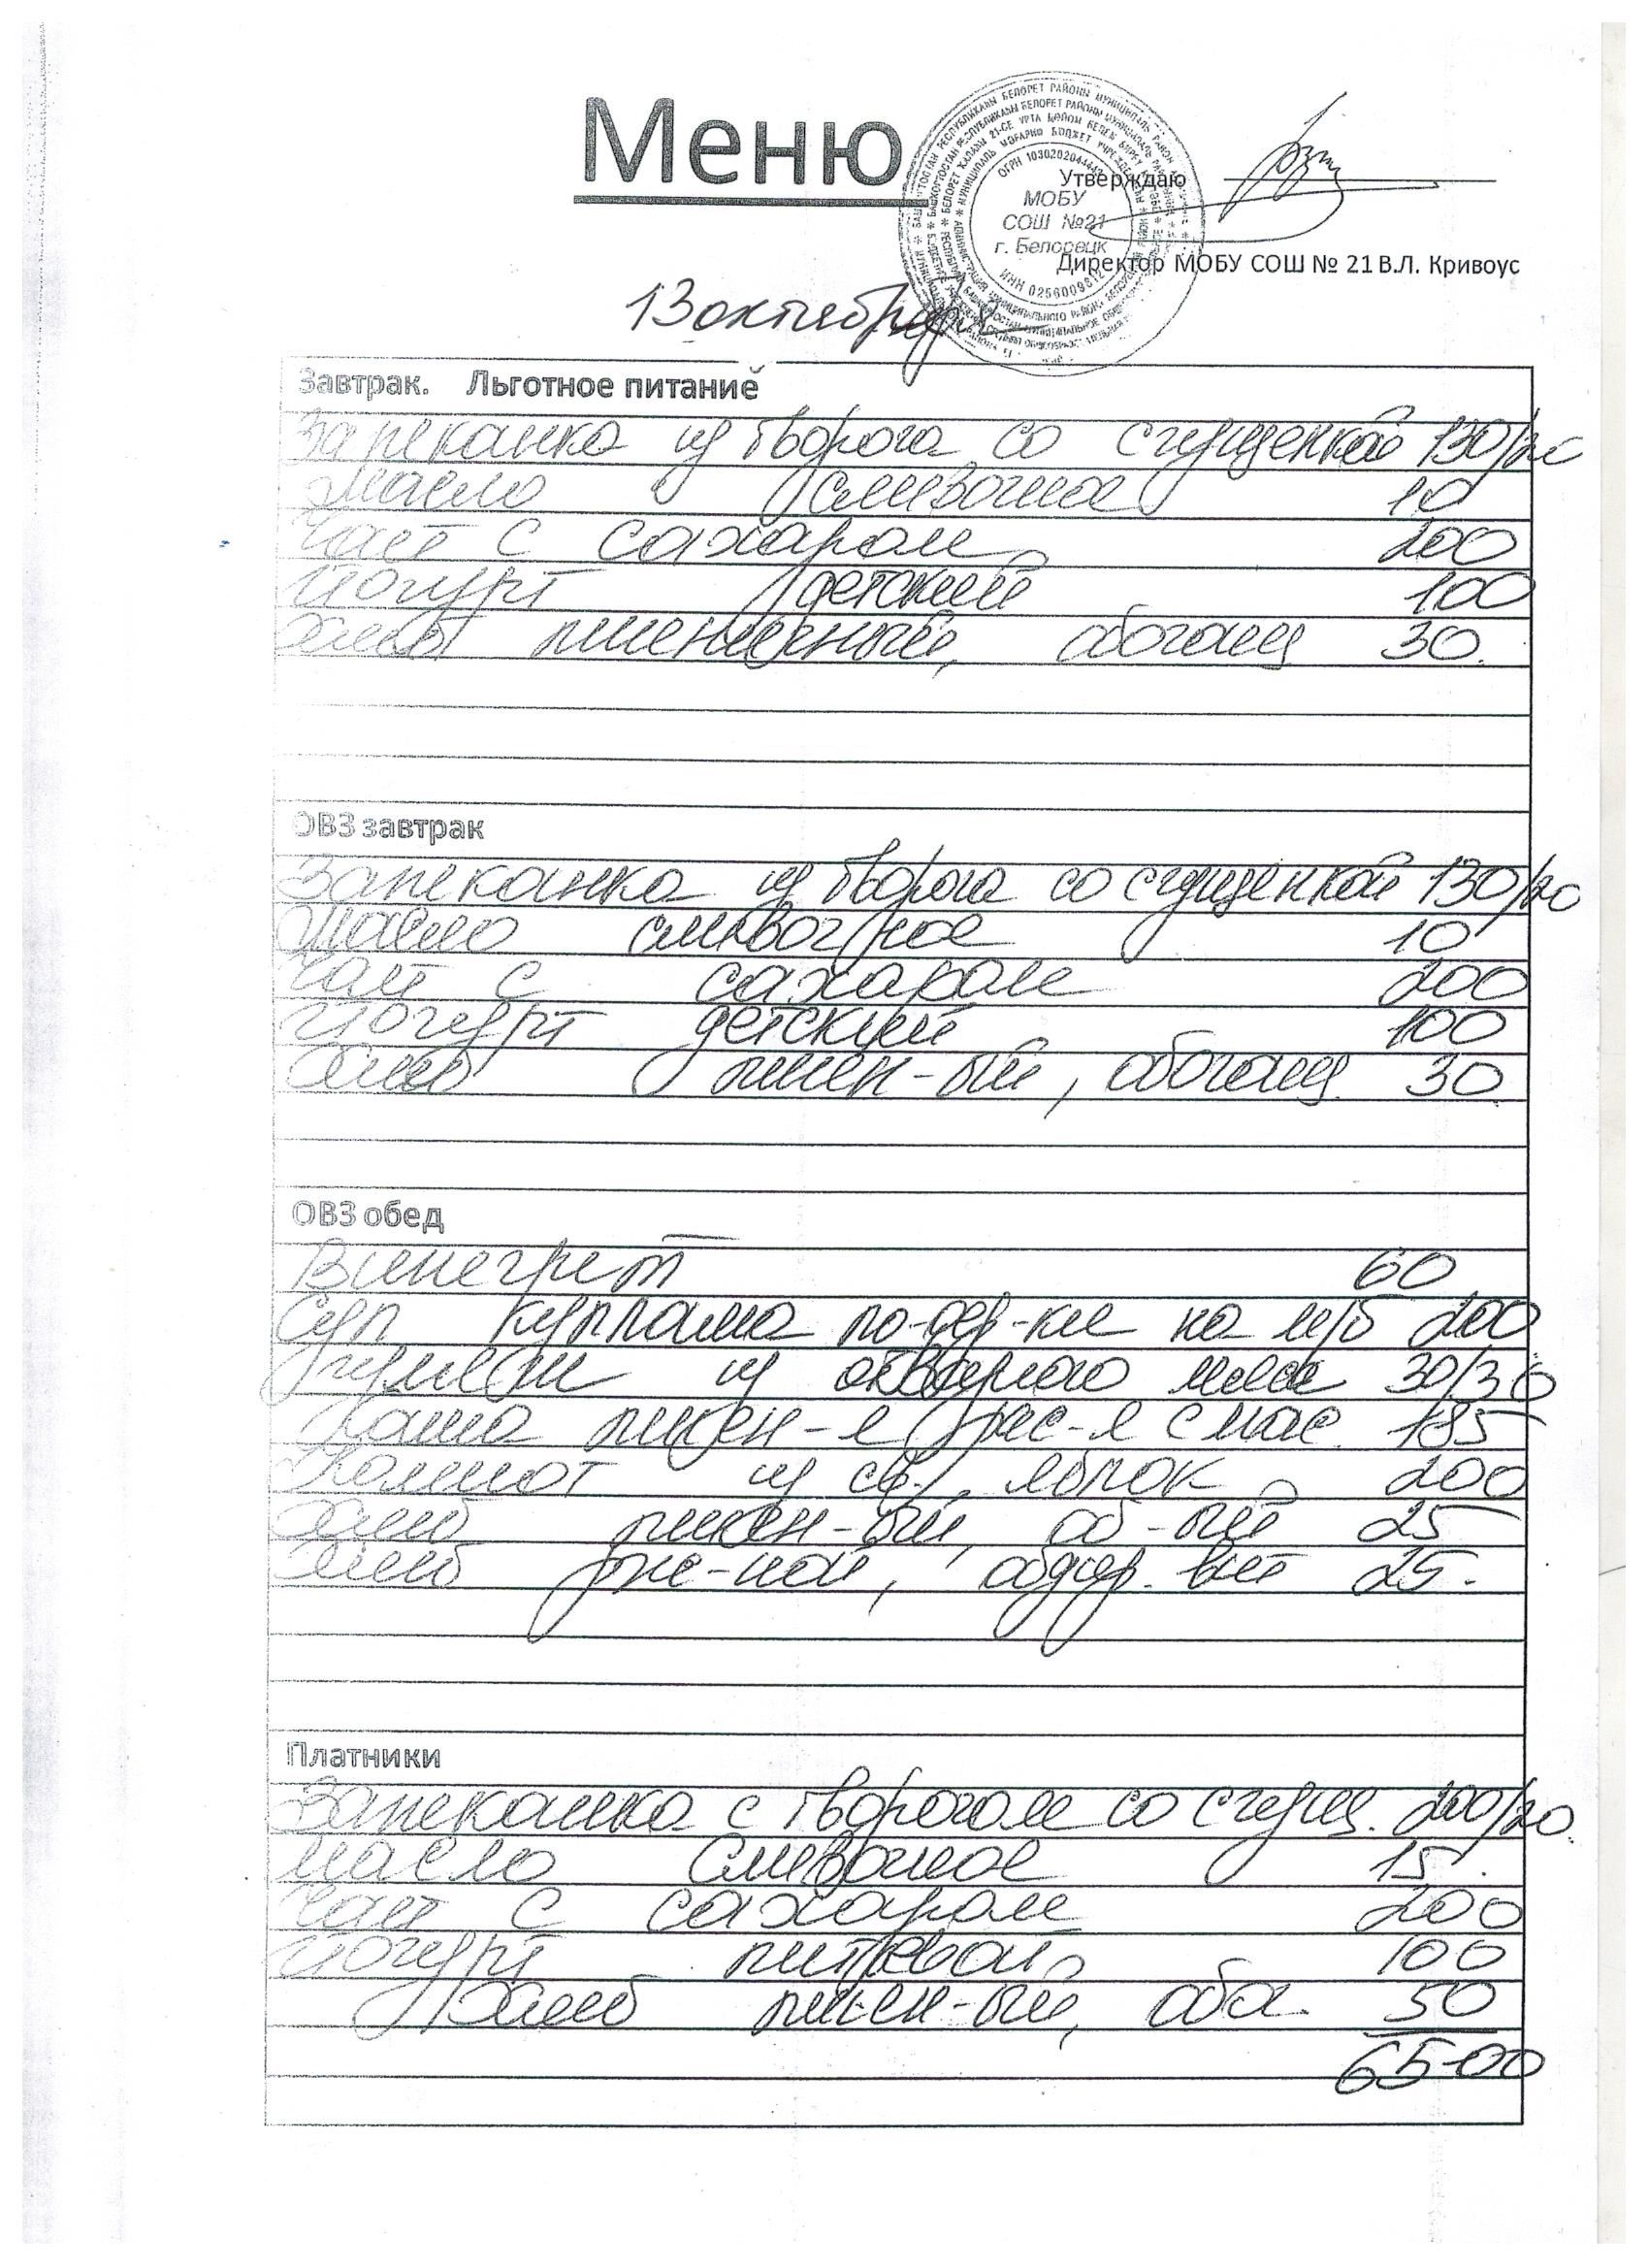 Меню
Утверждаю
МОБУ
СОШ №21
г. Белорецк
Директор МОБУ СОШ № 21 В.Л. Кривоус
13 октября
Завтрак. Льготное питание
Запеканка из творога со сгущенкой 130/20
Масло сливочное 10
Чай с сахаром 200
Йогурт детский 100
Хлеб пшеничный, обогащ 30.
ОВЗ завтрак
Запеканка из творога со сгущенкой 130/20
Масло сливочное 10
Чай с сахаром 200
Йогурт детский 100
Хлеб пшен-ый, обогащ. 30
ОВЗ обед
Винегрет 60
Суп Куллама по-дер-ки на м/б 200
Гуляш из отварного мяса 30/30
Каша пшен-я рас-я с мас. 185
Компот из св. яблок 200
Хлеб пшен-ый, об-ый 25
Хлеб рже-ной, обдир. вит 25.
Платники
Запеканка с творогом со сгущ. 200/20.
Масло Сливочное 15.
Чай с сахаром 200
Йогурт питьевой 100
Хлеб пшен-ый, обо. 50
65-00